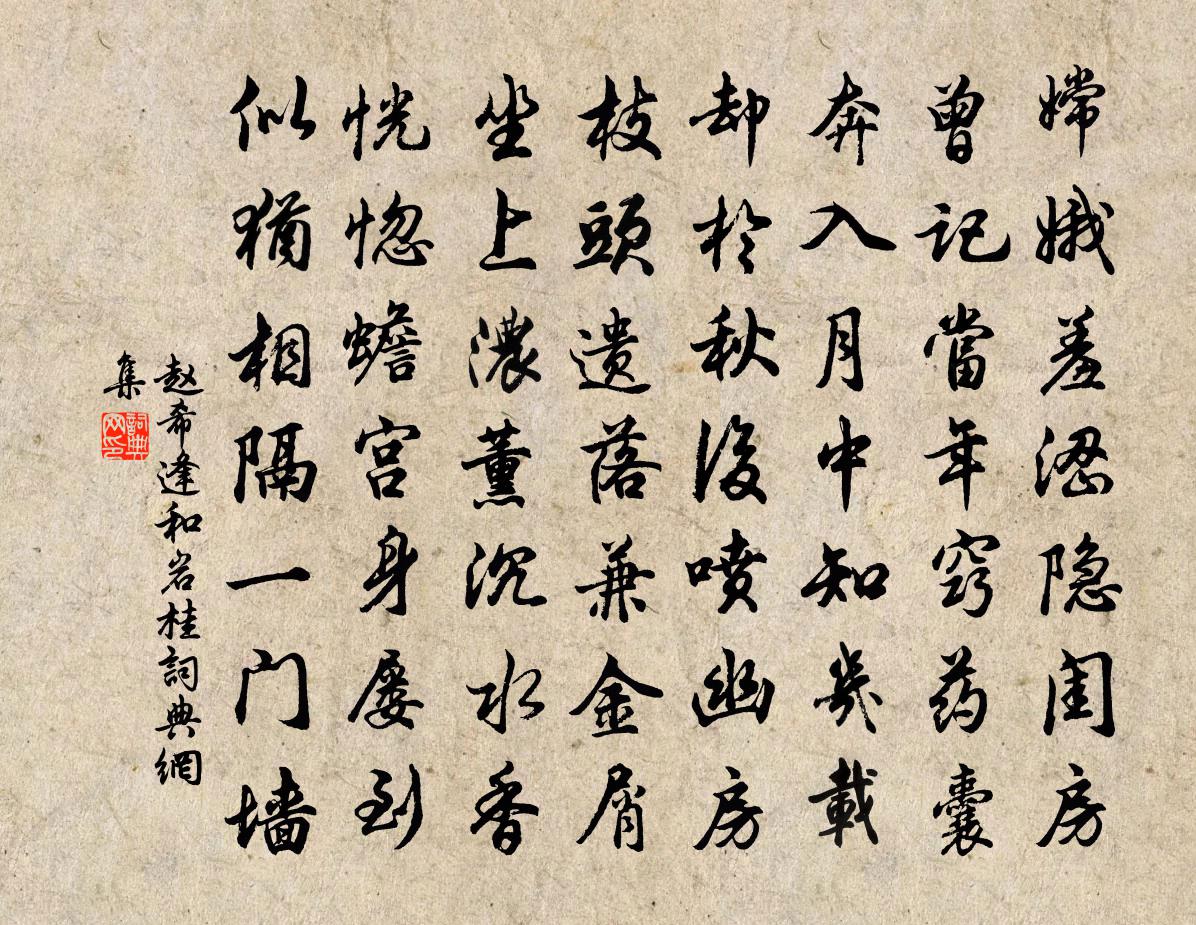 嫦娥羞涩隐闺房
曾记當年窃药囊
奔入月中知几載
却於秋後喷幽房
枝頭遗落兼金屑
坐上濃薰沉水香
恍惚蟾宫身屡到
似犹相隔一门墙
赵希逢和岩桂詞典網
集
詞典
网印